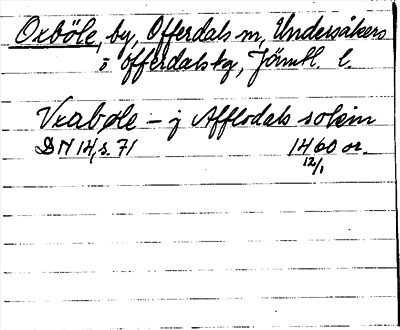 Oxböle, by, Offerdals sn, Undersåkers
o Offerdals tg, Jämtl. l.
Vxabøle – j Afflodals sokin
DN 14, s. 71 1460 or.
12/1